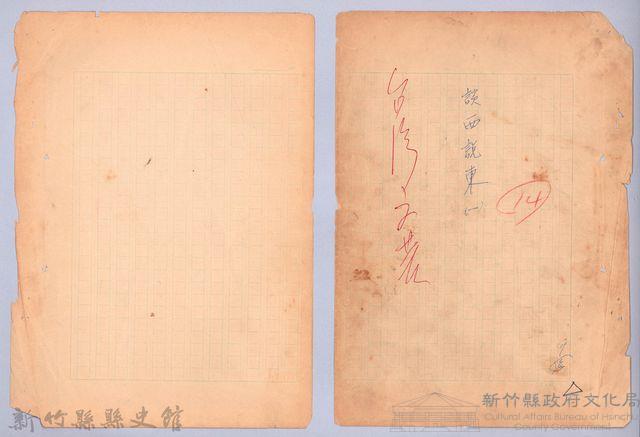 14
談西說東(一)
台湾文芸
新竹縣縣史館
新竹縣政府文化局
Cultural Affairs Bureau of Hsinchu
County Government